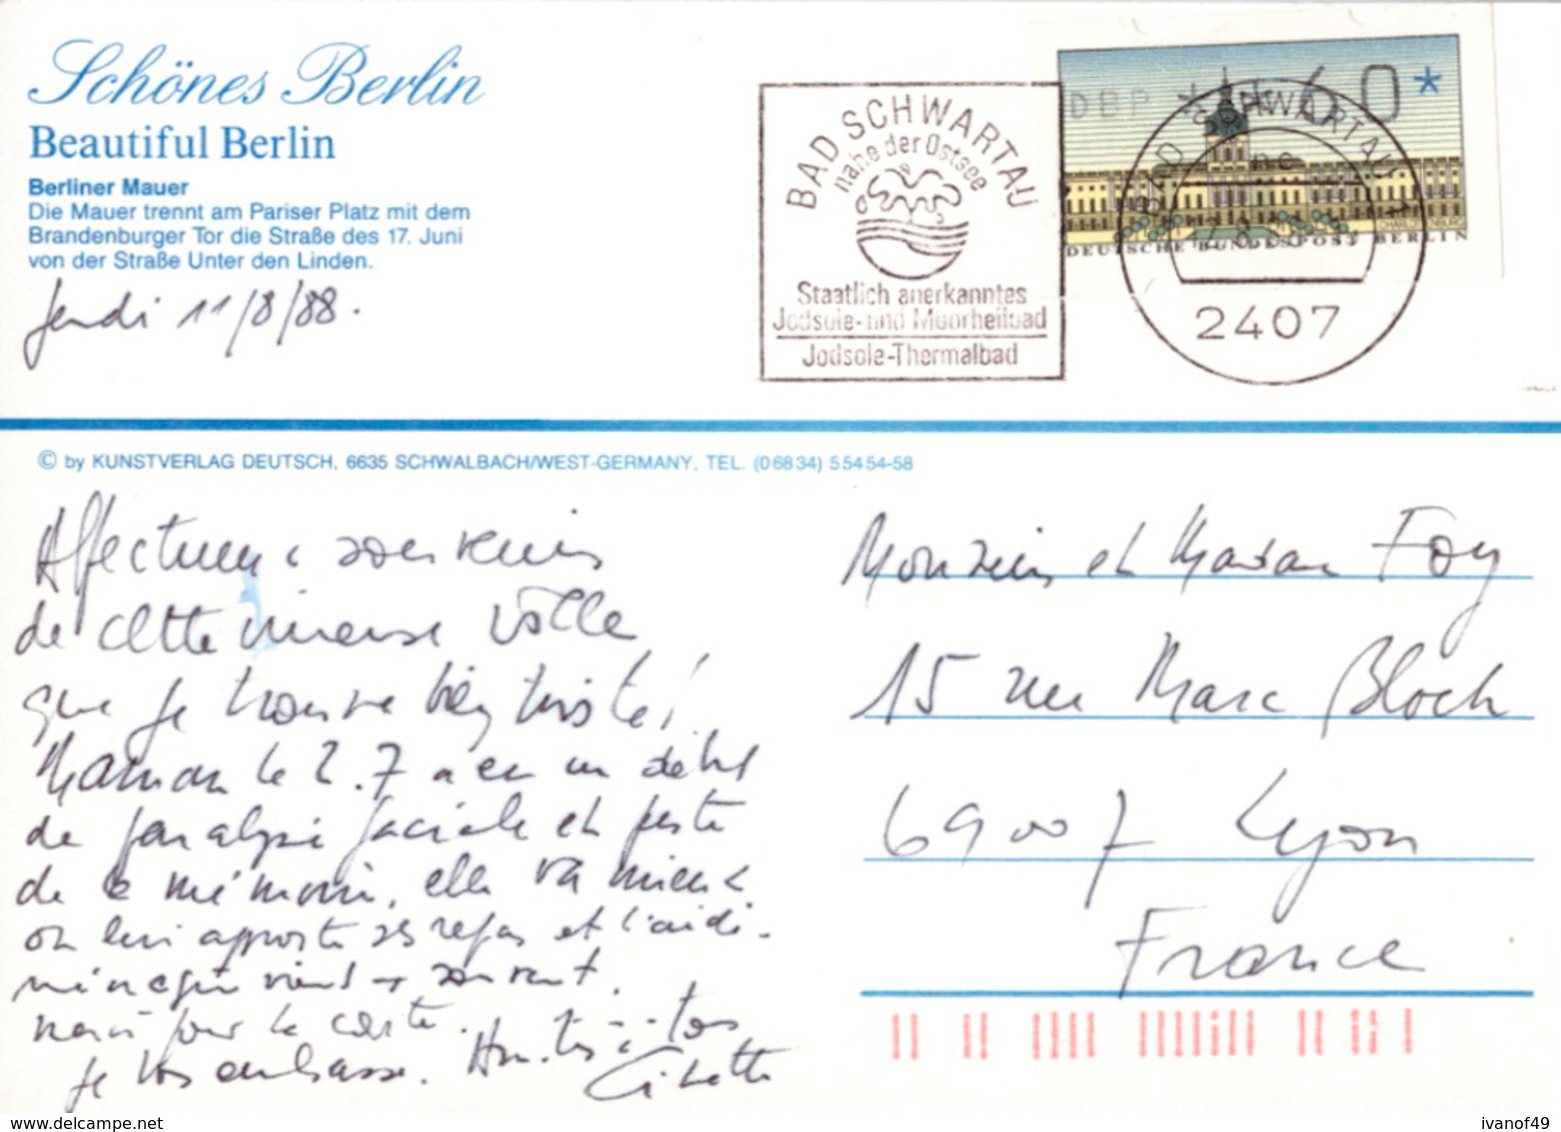 Schönes Berlin
Beautiful Berlin
Berliner Mauer
Die Mauer trennt am Pariser Platz mit dem
Brandenburger Tor die Straße des 17. Juni
von der Straße Unter den Linden.
Jeudi 11/8/88.
BAD SCHWARTAU
nahe der Ostsee
Staatlich anerkanntes
Jodsole- und Moorheilbad
Jodsole-Thermalbad
DBP 60*
DEUTSCHE BUNDESPOST BERLIN
BAD SCHWARTAU
2407
© by KUNSTVERLAG DEUTSCH, 6635 SCHWALBACH/WEST-GERMANY, TEL. (06834) 55454-58
Affectueux souvenirs
de cette immense ville
que je trouve bien triste!
Maman le 2.7 a eu un début
de paralysie faciale et perte
de mémoire, elle va mieux
on lui apporte ses repas et l'aide-
ménagère vient + souvent.
merci pour la carte.
Je vous embrasse. à tous
Monsieur et Madame Foy
15 rue Marc Bloch
69007 Lyon
France
www.delcampe.net
ivanof49